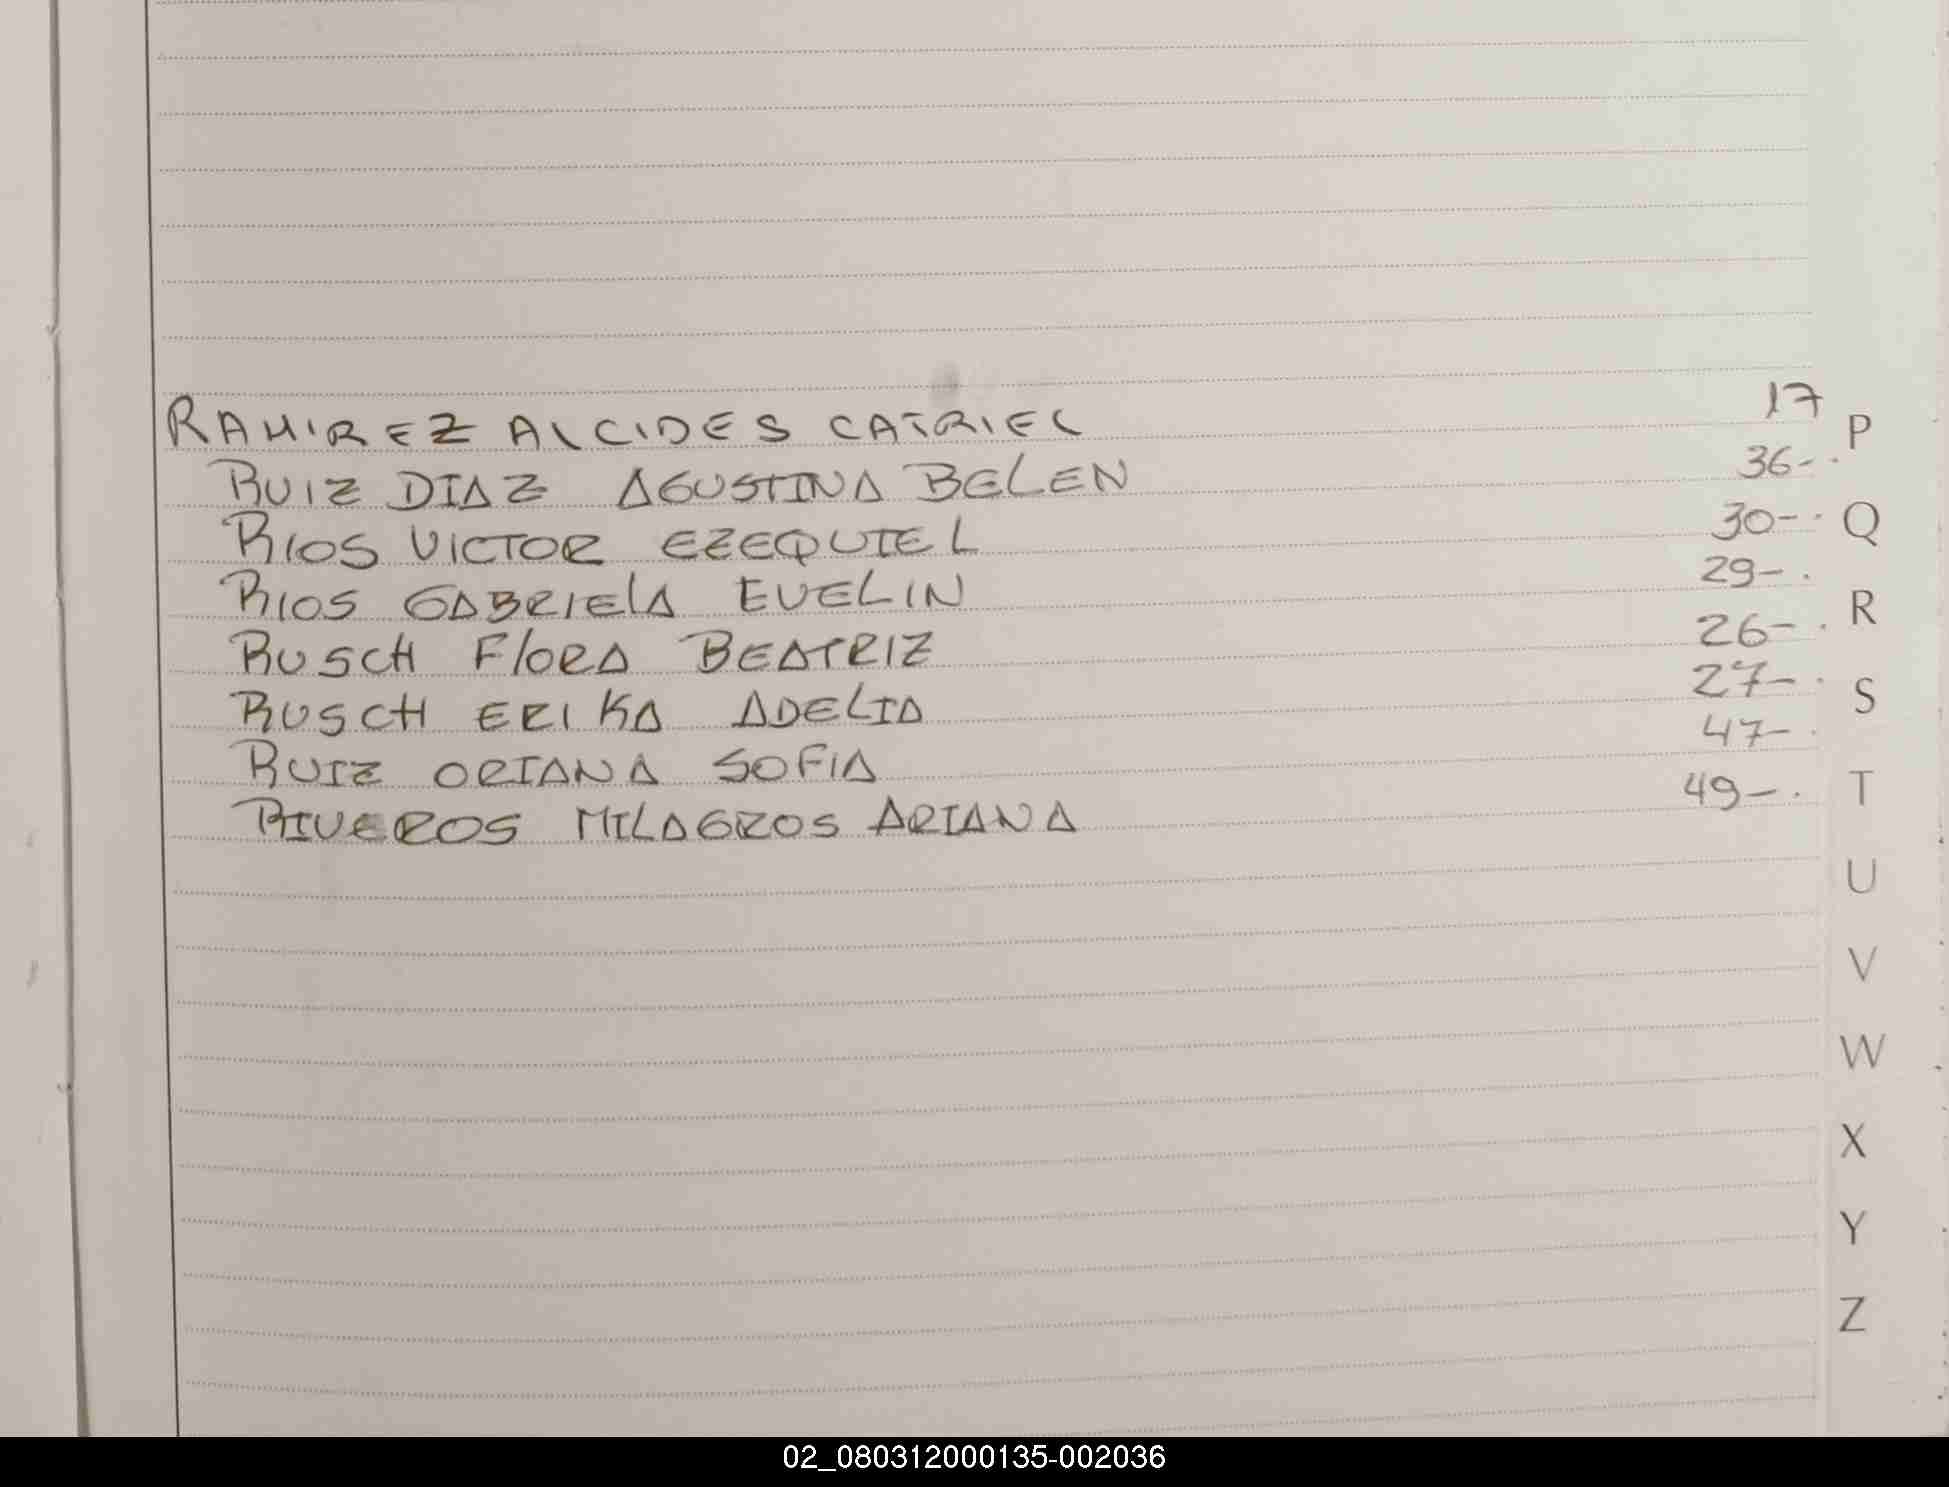 RAMIREZ ALCIDES CATRIEL 17
RUIZ DIAZ AGUSTINA BELEN 36-.
RIOS VICTOR EZEQUIEL 30-.
RIOS GABRIELA EVELIN 29-.
RUSCH FLORA BEATRIZ 26-.
RUSCH ERIKA ADELIA 27-.
RUIZ ORIANA SOFIA 47-.
RIVEROS MILAGROS ARIANA 49-.
P
Q
R
S
T
U
V
W
X
Y
Z
02_080312000135-002036